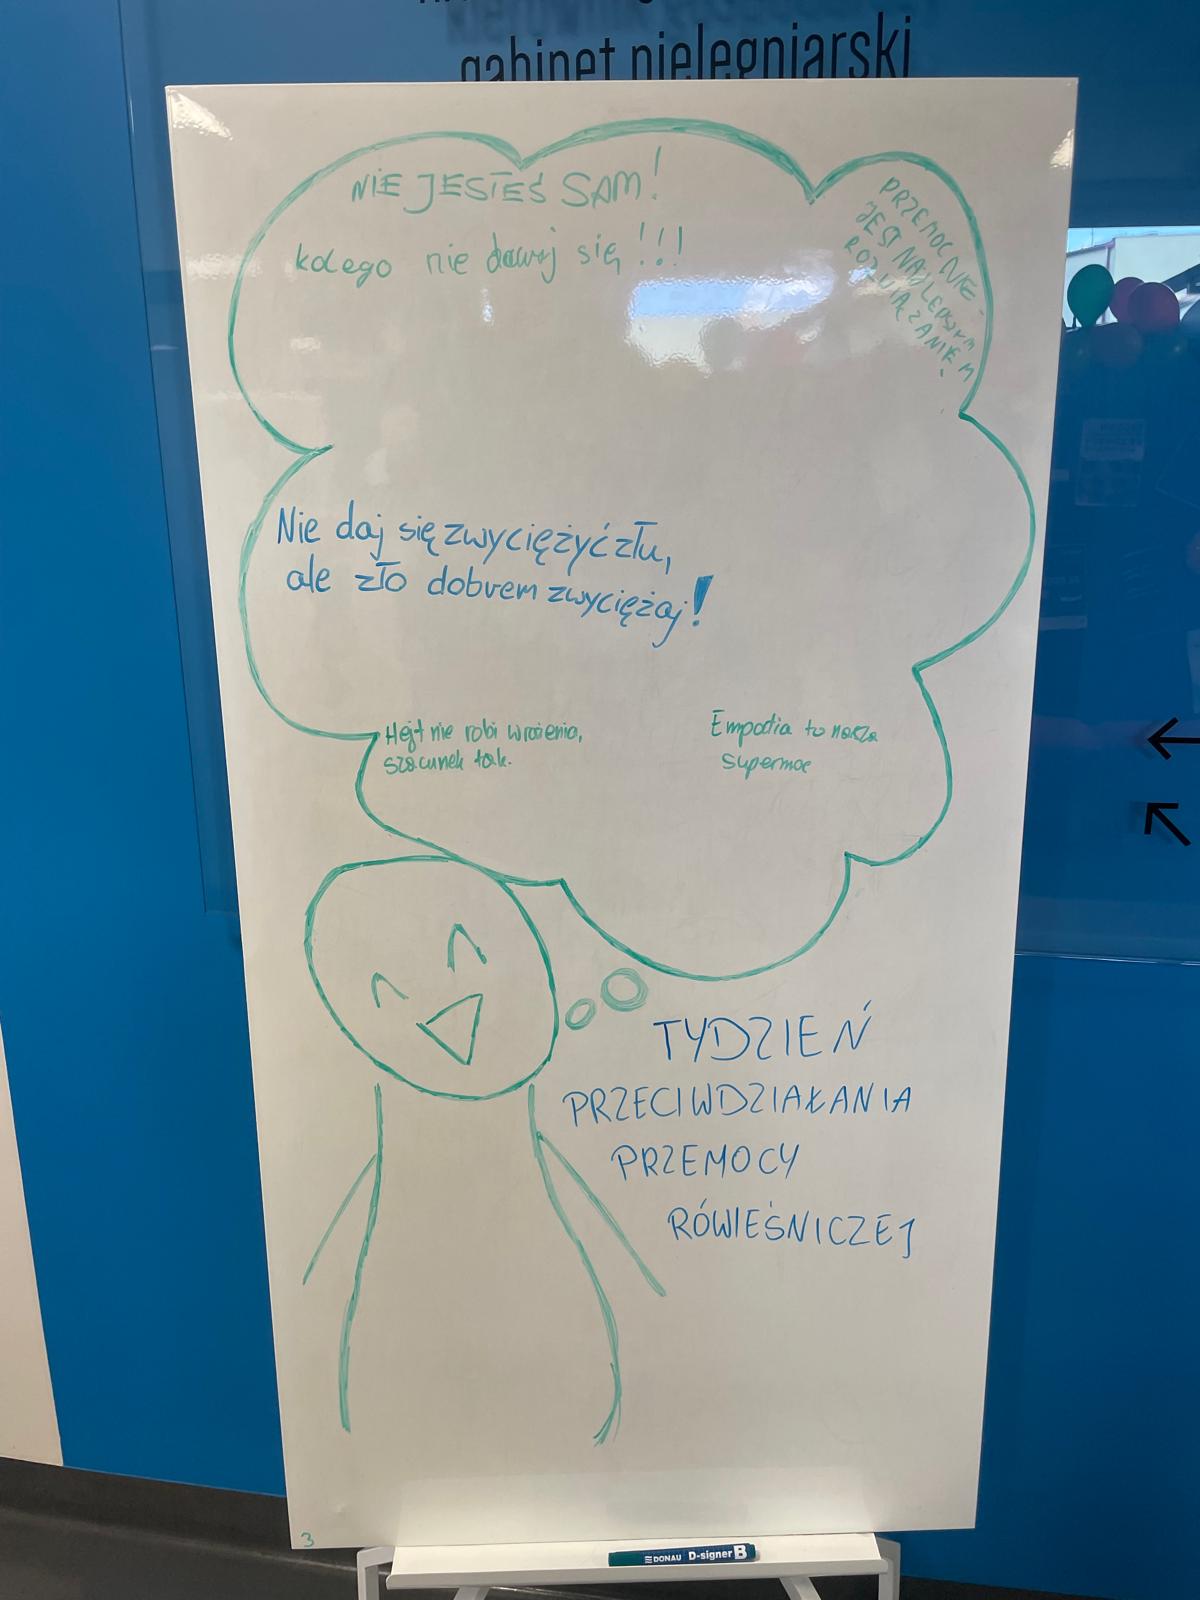 gabinet pielęgniarski
NIE JESTEŚ SAM!
kolego nie dawaj się!!!
PRZEMOC NIE
JEST NAJLEPSZYM
ROZWIĄZANIEM!
Nie daj się zwyciężyć złu,
ale zło dobrem zwyciężaj!
Hejt nie robi wrażenia,
szacunek tak.
Empatia to nasza
supermoc
TYDZIEŃ
PRZECIWDZIAŁANIA
PRZEMOCY
RÓWIEŚNICZEJ
3
DONAU D-signer B